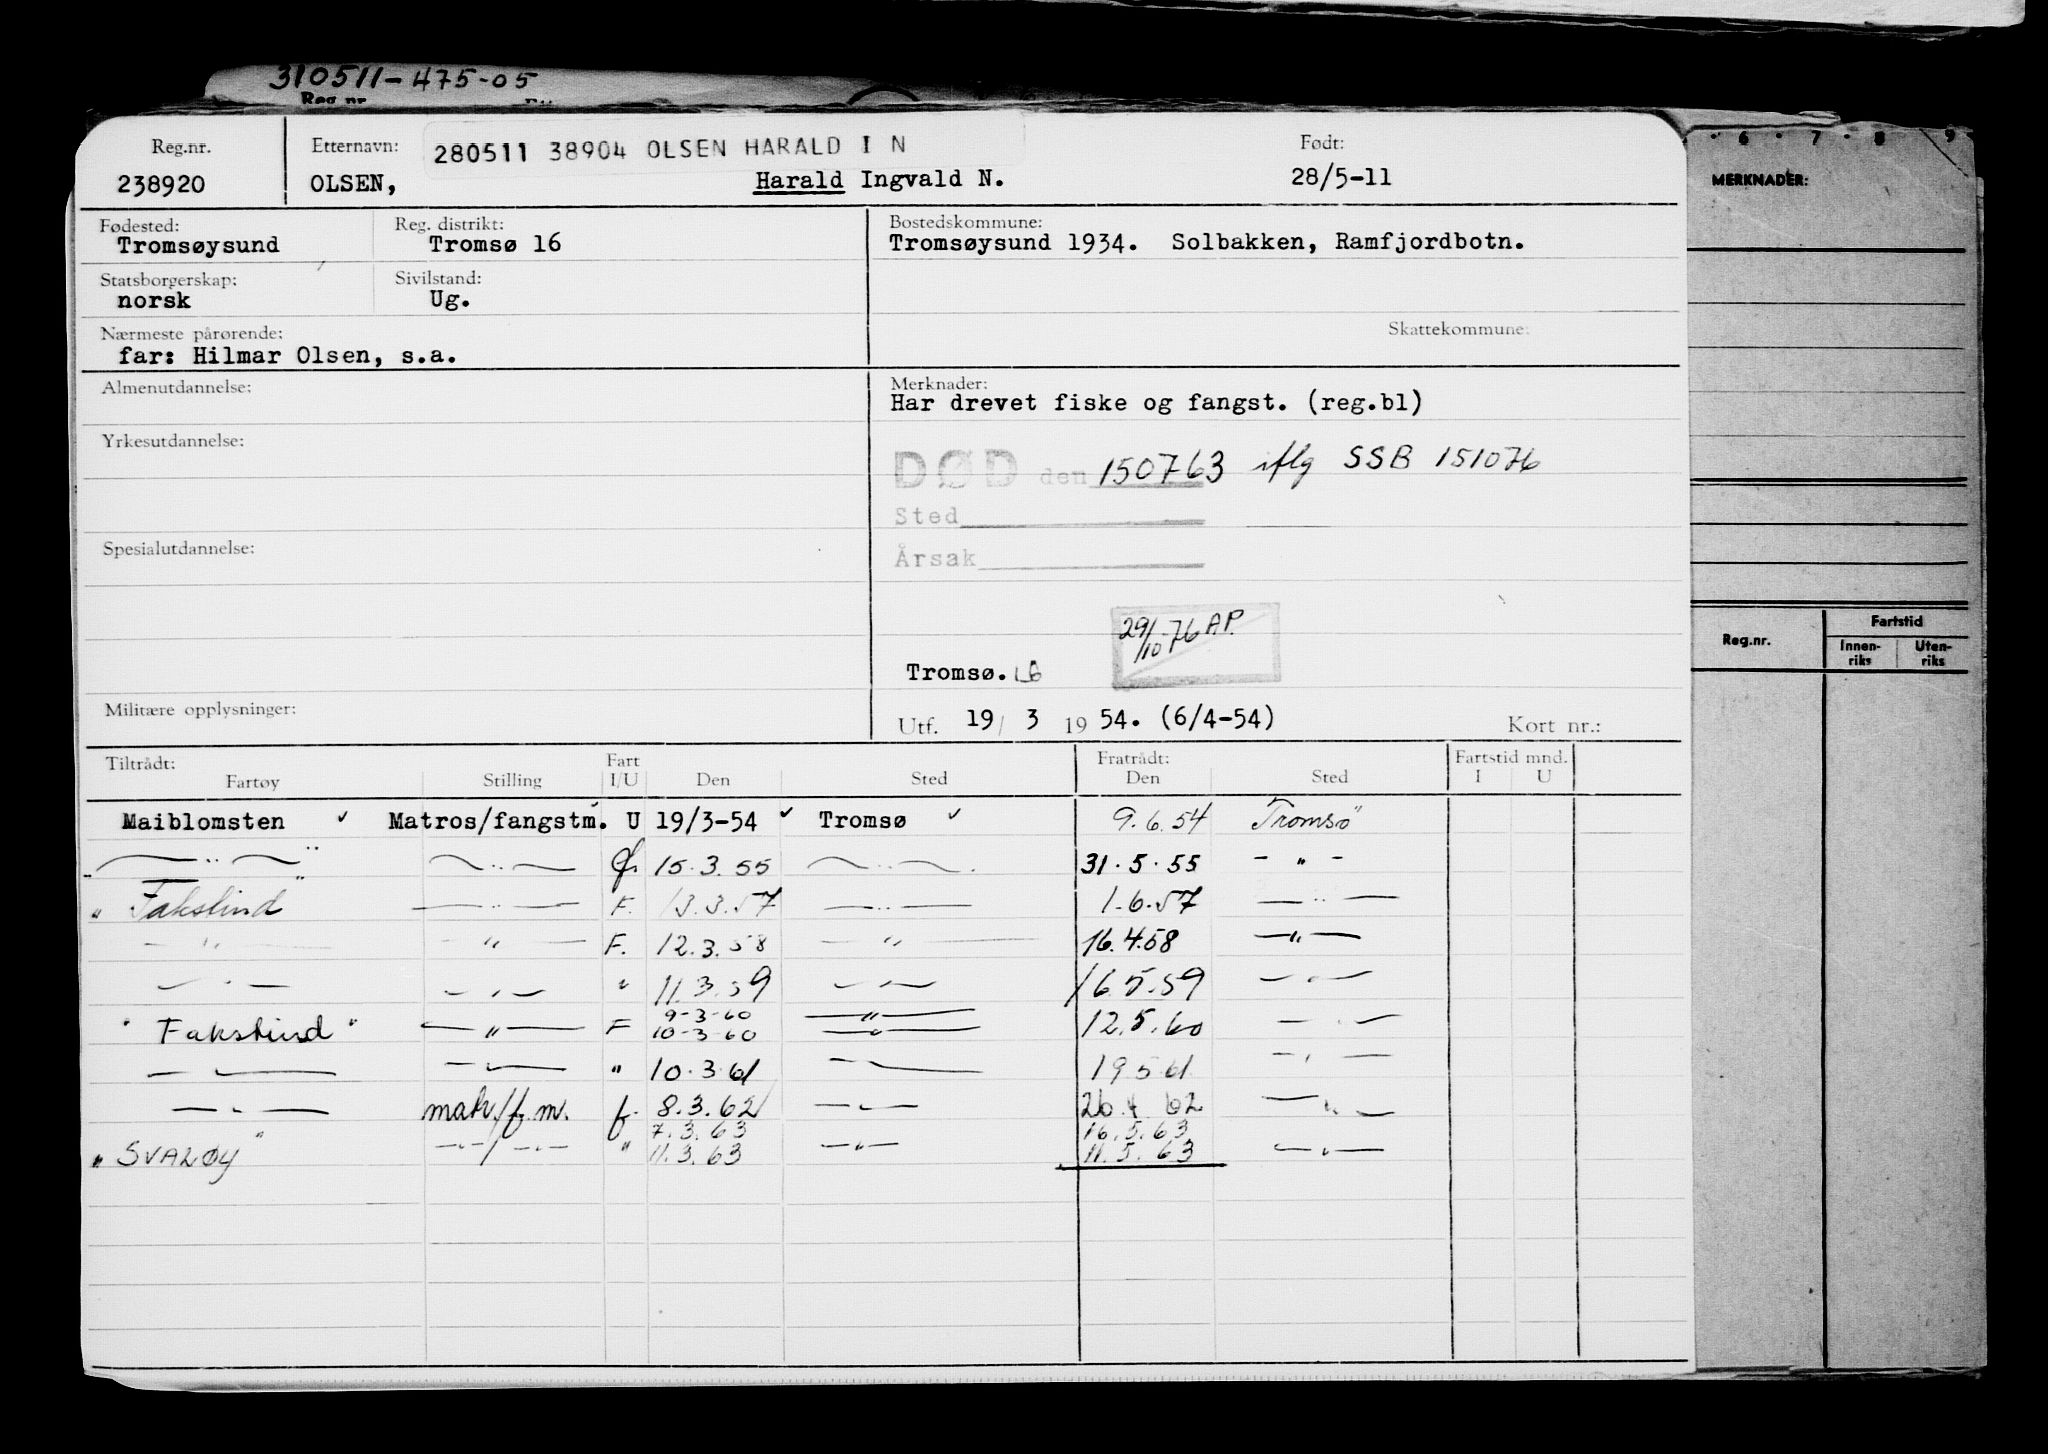 310511-475-05
Reg.nr.
6 . 7 . 8 9
MERKNADER:
Reg.nr. Fartstid
Innen-riks Uten-riks
Reg.nr. Etternavn: 280511 38904 OLSEN HARALD I N Født:
238920 OLSEN, Harald Ingvald N. 28/5-11
Fødested: Reg. distrikt: Bostedskommune:
Tromsøysund Tromsø 16 Tromsøysund 1934. Solbakken, Ramfjordbotn.
Statsborgerskap: Sivilstand:
norsk Ug.
Nærmeste pårørende: Skattekommune:
far: Hilmar Olsen, s.a.
Almenutdannelse: Merknader:
Har drevet fiske og fangst. (reg.bl)
Yrkesutdannelse:
DØD den 150763 iflg SSB 151076
Sted
Spesialutdannelse: Årsak
29/10-76 A.P.
Tromsø.
Militære opplysninger: Utf. 19/ 3 19 54. (6/4-54) Kort nr.:
Tiltrådt: Fart Fratrådt: Fartstid mnd.
Fartøy Stilling I/U Den Sted Den Sted I U
Maiblomsten ✓ Matros/fangstm. U 19/3-54 ✓ Tromsø ✓ 9.6.54 Tromsö
— " — — " — 15.3.55 — " — 31.5.55 - " -
" Fakstind " — " — F. 13.3.57 — " — 1.6.57 — " —
— " — — " — F. 12.3.58 — " — 16.4.58 — " —
— " — — " — " 11.3.59 — " — 16.5.59 — " —
9-3-60 — " —
" Fakstind " — " — F 10-3-60 — " — 12.5.60 — " —
— " — — " — " 10.3.61 — " — 19 5 61 — " —
— " — matr./f.m. f. 8.3.62 — " — 26.4.62 — " —
7.3.63 16.5.63
" SVALØY " — " — / — " — " 11.3.63 — " — 11.5.63 — " —